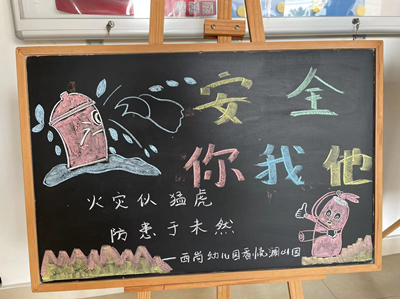 安全
你我他
火灾似猛虎
防患于未然
——西岗幼儿园香悦澜山园